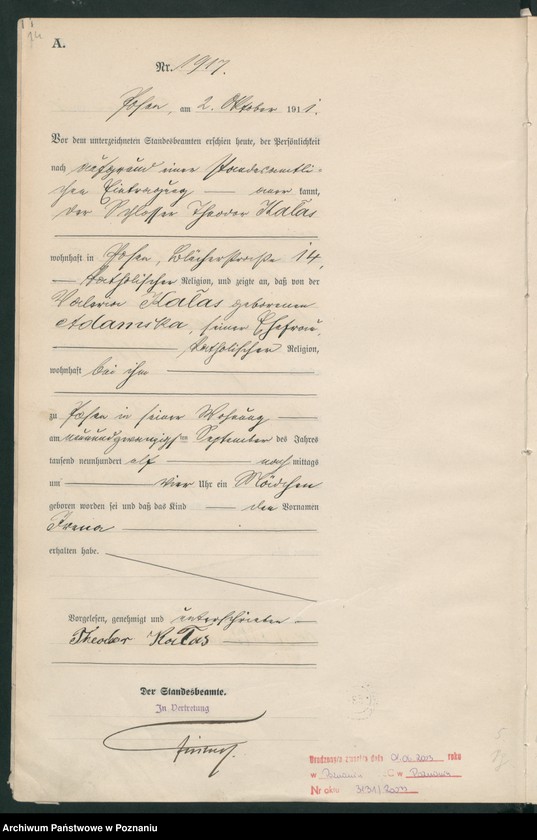 A.
Nr. 1917.
Posen, am 2. Oktober 1911.
Vor dem unterzeichneten Standesbeamten erschien heute, der Persönlichkeit
nach aufgrund einer standesamtli-
chen Eintragung aner kannt,
der Schlosser Theodor Kałas
wohnhaft in Posen, Blücherstraße 14,
katholischer Religion, und zeigte an, daß von der
Valeria Kałas geborenen
Adamska, seiner Ehefrau,
katholischer Religion,
wohnhaft bei ihm
zu Posen in seiner Wohnung
am neunundzwanzigsten September des Jahres
tausend neunhundert elf nachmittags
um vier Uhr ein Mädchen
geboren worden sei und daß das Kind den Vornamen
Irena
erhalten habe.
Vorgelesen, genehmigt und unterschrieben
Theodor Kałas
Der Standesbeamte.
In Vertretung
roku
w C w
Nr aktu 3131/2003
Archiwum Państwowe w Poznaniu